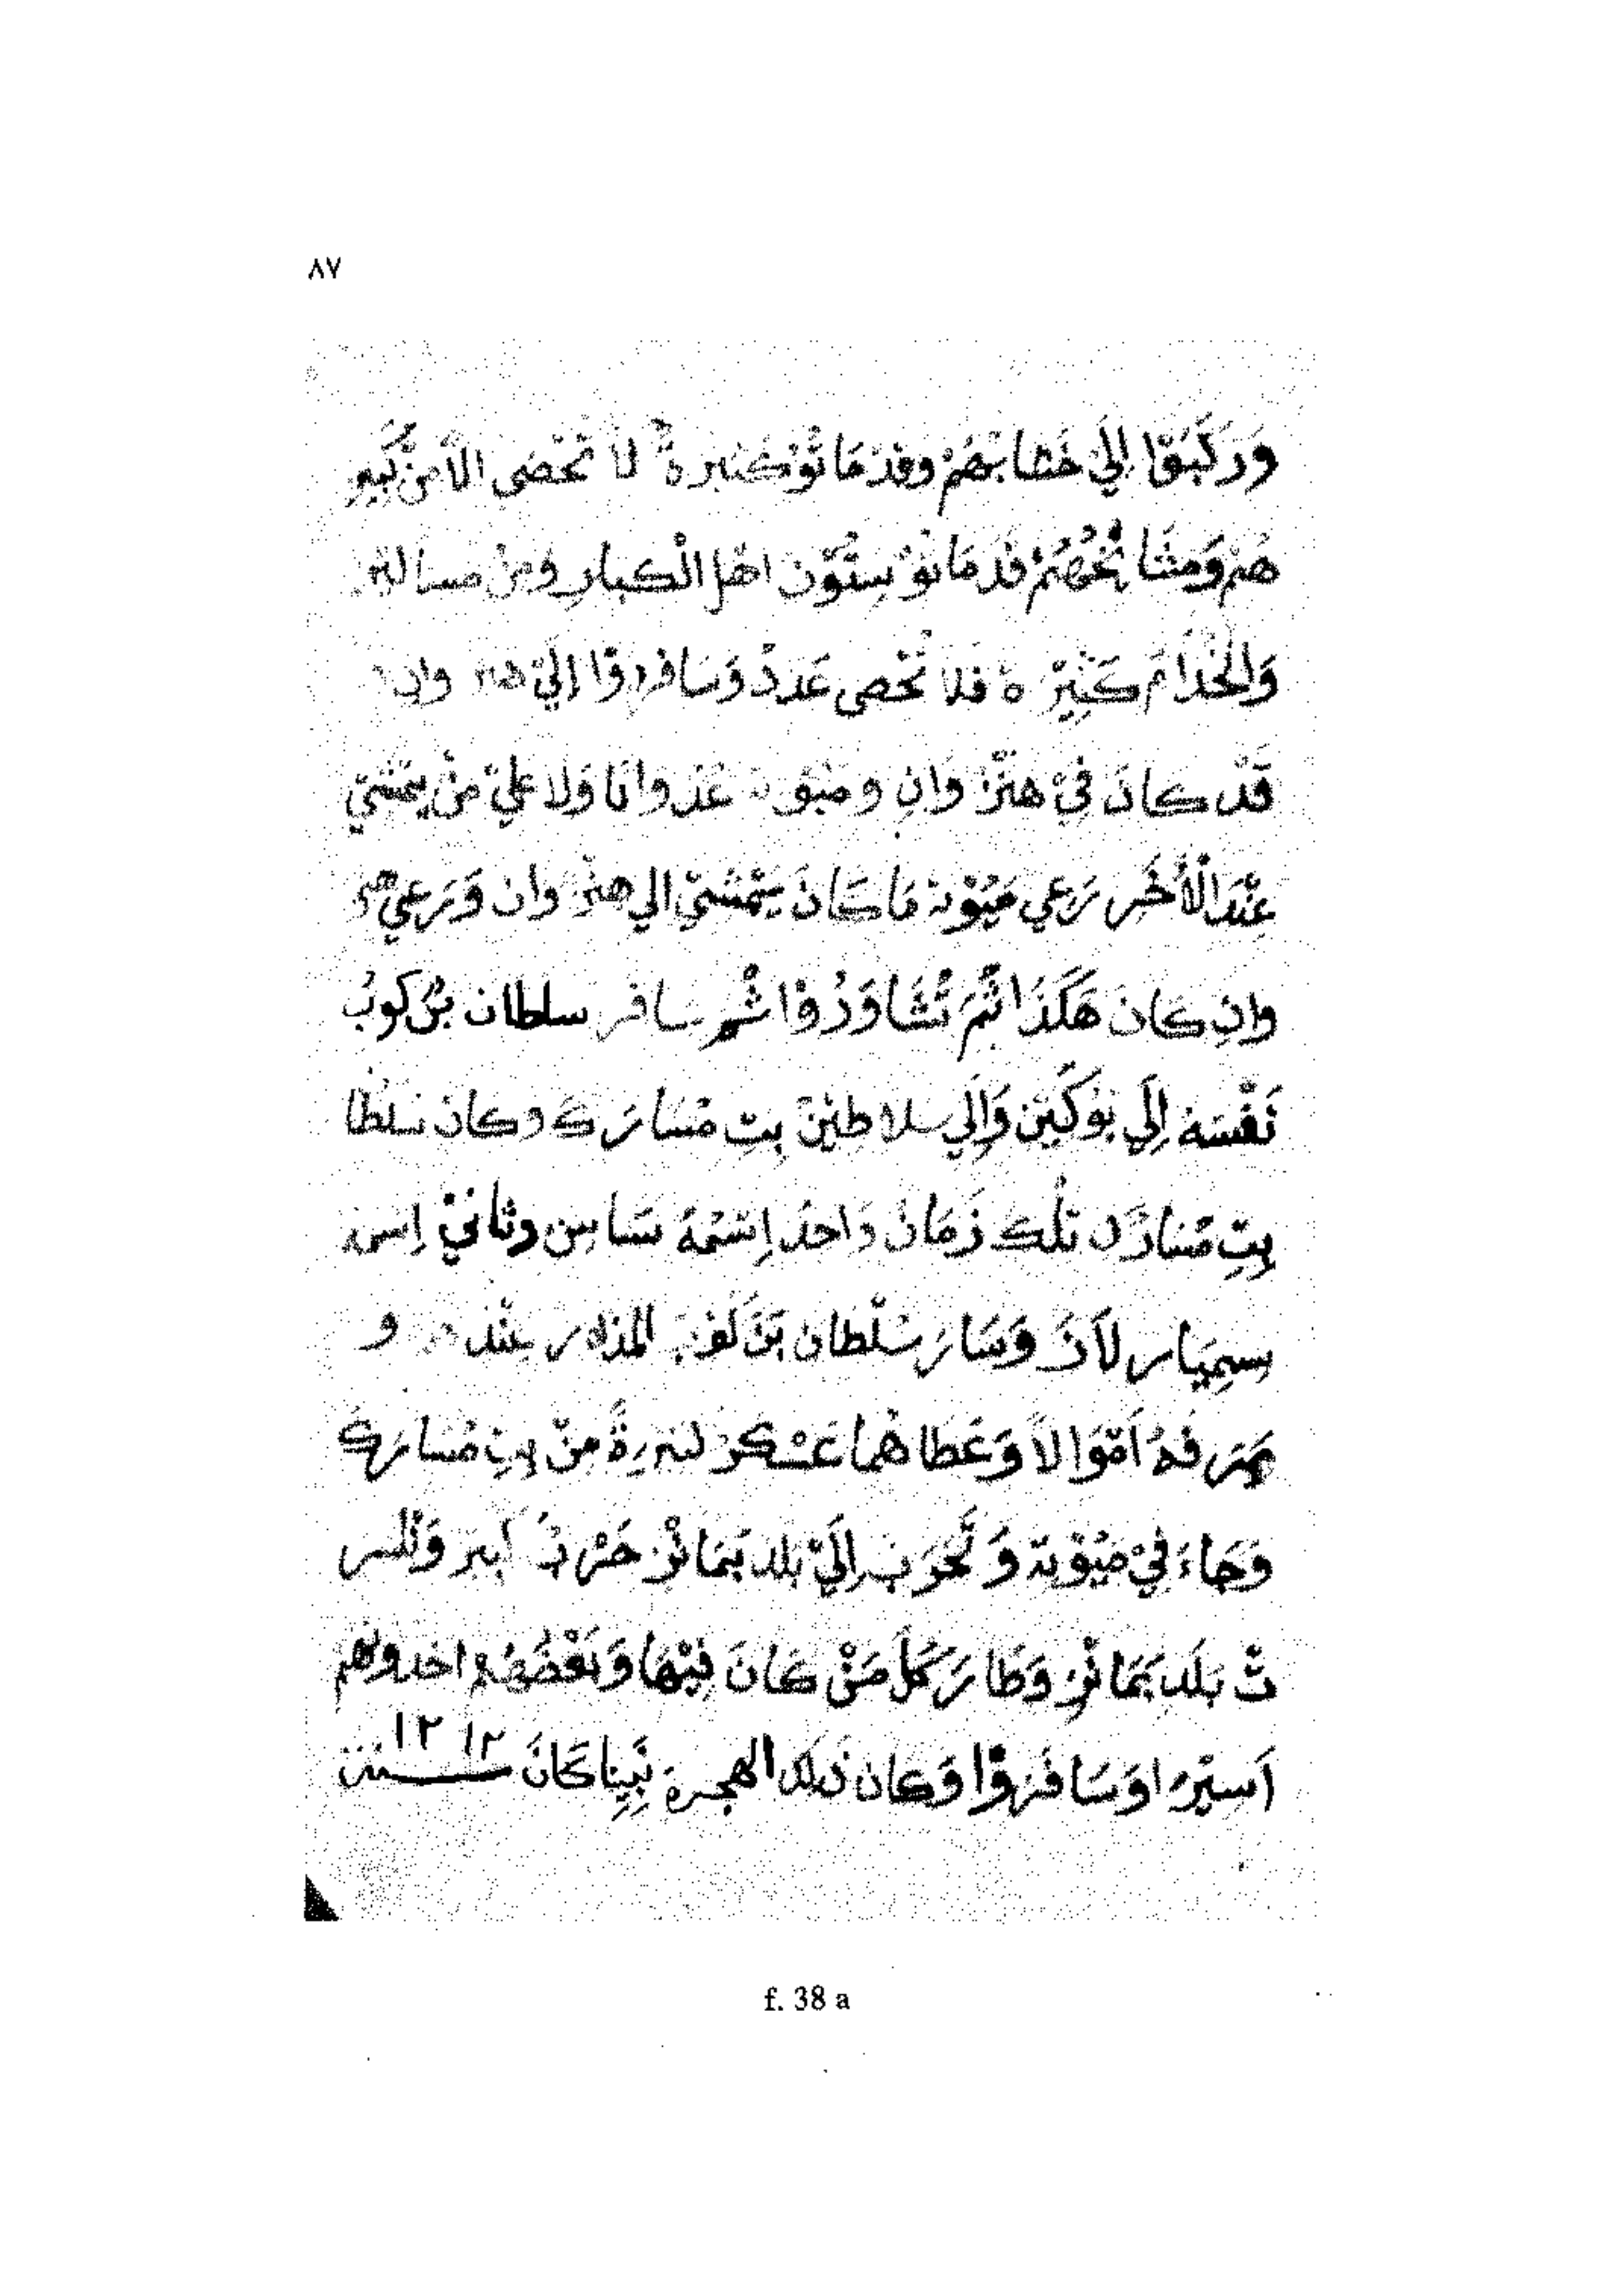 ٨٧
وَرَكَبُوْا اِلَيْ خَشَابِهُمْ وقَدْ مَاتُوْ كثيرة لا تحصى الا مِنْ كَبِيْر
هُمْ وَمَشَائِخُهُمْ قَدْ مَاتُوْ سِتُّوْن اهل الْكبار وَمِنْ
وَالخُدَامْ كَثِيْرَة فلا تُحْصى عَدَدْ وَسَافَرُوْا اِلَيْ
قَدْ كَانَ فِيْ هنزوانِ وميوته عَدْوانَا وَلا عَلِيْ مَنْ يَمْشِيْ
عِنْدَ الْأُخَر رَعِي مَيُوْتة مَا كَانَ يَمْشِيْ الي هنزوان وَرَعِي هنز
وانِ كان هَكَذَا ثُمَ تُشَاوَرُوْا ثُم سافر سلطان بُنْ كوبُ
نَفْسَهُ اِلَي بُوْكَيْن وَاِلَي سلاطِيْنْ بِتِ مْسَارَكَ وكان سُلطا
بِتِ مْسَارَكَ تلْك زَمَانْ وَاحِدُ اِسْمُهُ سَاسِ وثَانيْ اِسمه
سِمِيَار لَانَ وَسَارَ سُلْطان بَنَ كوب المذكور عِنْد و
صَرَفهُ اَمْوَالاً وَعَطَاهُمَا عَسْكر كثيرةً مِنْ بِتِ مْسَارَك
وَجَاءَ فيْ مَيُوْتة وَتَحَرَبَ اِلَيْ بَلَد بَمَانْزِ حَرْبُ كبير وَتْكسر
تْ بَلَد بَمَانْزِ وَطَارَ كُلَ مَنْ كَانَ فِيْهَا وَبَعْضُهُم اخذوهم
اَسيْرًا وَسَافَرُوْا وَكَان ذلك الهجرة نَبِيِنا كَانَ سنة ١٢١٢
f. 38 a